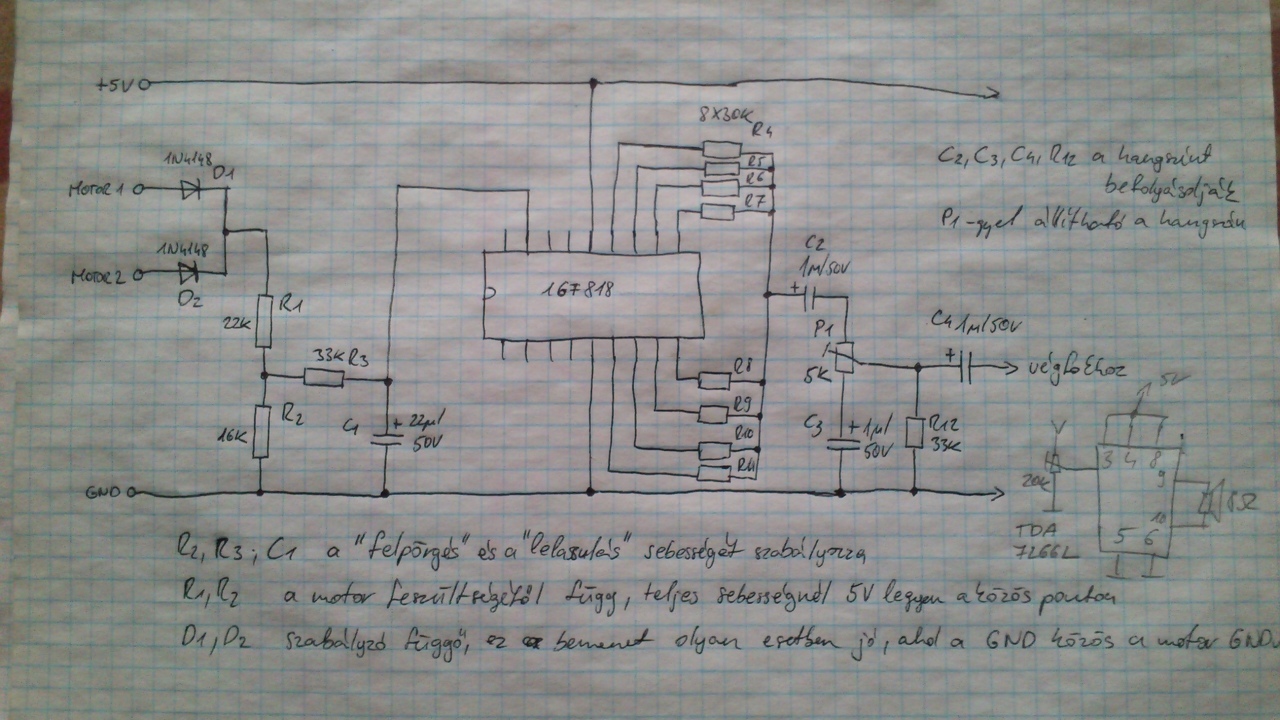 +5V
8X30K
R4
R5
R6
R7
1N4148
D1
MOTOR1
1N4148
MOTOR2
D2
C2, C3, C4, R12 a hangszint
befolyásolják
P1-gyel állítható a hangerő
R1
22K
33K R3
R2
16K
C1
+ 22µ/
50V
16F818
C2
1µ/50V
+
P1
5K
C4 1µ/50V
+
végfokhoz
R8
R9
R10
R11
C3
+ 1µ/
50V
R12
33K
GND
5V
20K
3 4 8
9
10
5 6
8Ω
TDA
7266L
R2, R3, C1 a "felpörgés" és a "lelassulás" sebességét szabályozza
R1, R2 a motor feszültségétől függ, teljes sebességnél 5V legyen a közös ponton
D1, D2 szabályzó függő, ez bemenet olyan esetben jó, ahol a GND közös a motor GND